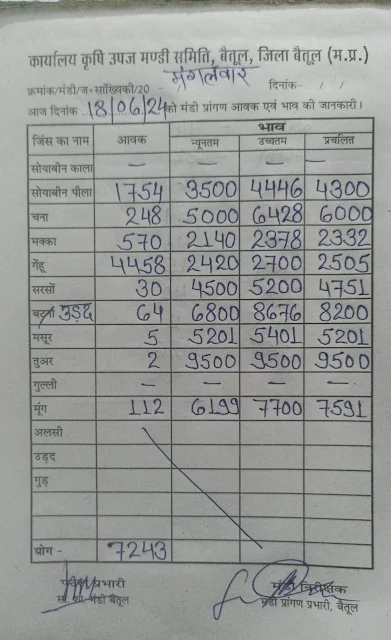 कार्यालय कृषि उपज मण्डी समिति, बैतूल, जिला बैतूल (म.प्र.)
मंगलवार
क्रमांक/मंडी/ज+सांख्यिकी/20 - दिनांक- / /
आज दिनांक 18/06/24 को मंडी प्रांगण आवक एवं भाव की जानकारी।
जिंस का नाम आवक भाव
न्यूनतम उच्चतम प्रचलित
सोयाबीन काला — — —
सोयाबीन पीला 1754 3500 4446 4300
चना 248 5000 6428 6000
मक्का 570 2140 2378 2332
गेंहू 4458 2420 2700 2505
सरसों 30 4500 5200 4751
उड़द 64 6800 8676 8200
मसूर 5 5201 5401 5201
तुअर 2 9500 9500 9500
गुल्ली — — — —
मूंग 112 6199 7700 7591
अलसी
उड़द
गुड़
योग - 7243
प्रभारी मंडी निरीक्षक
मंडी बैतूल मंडी प्रांगण प्रभारी, बैतूल